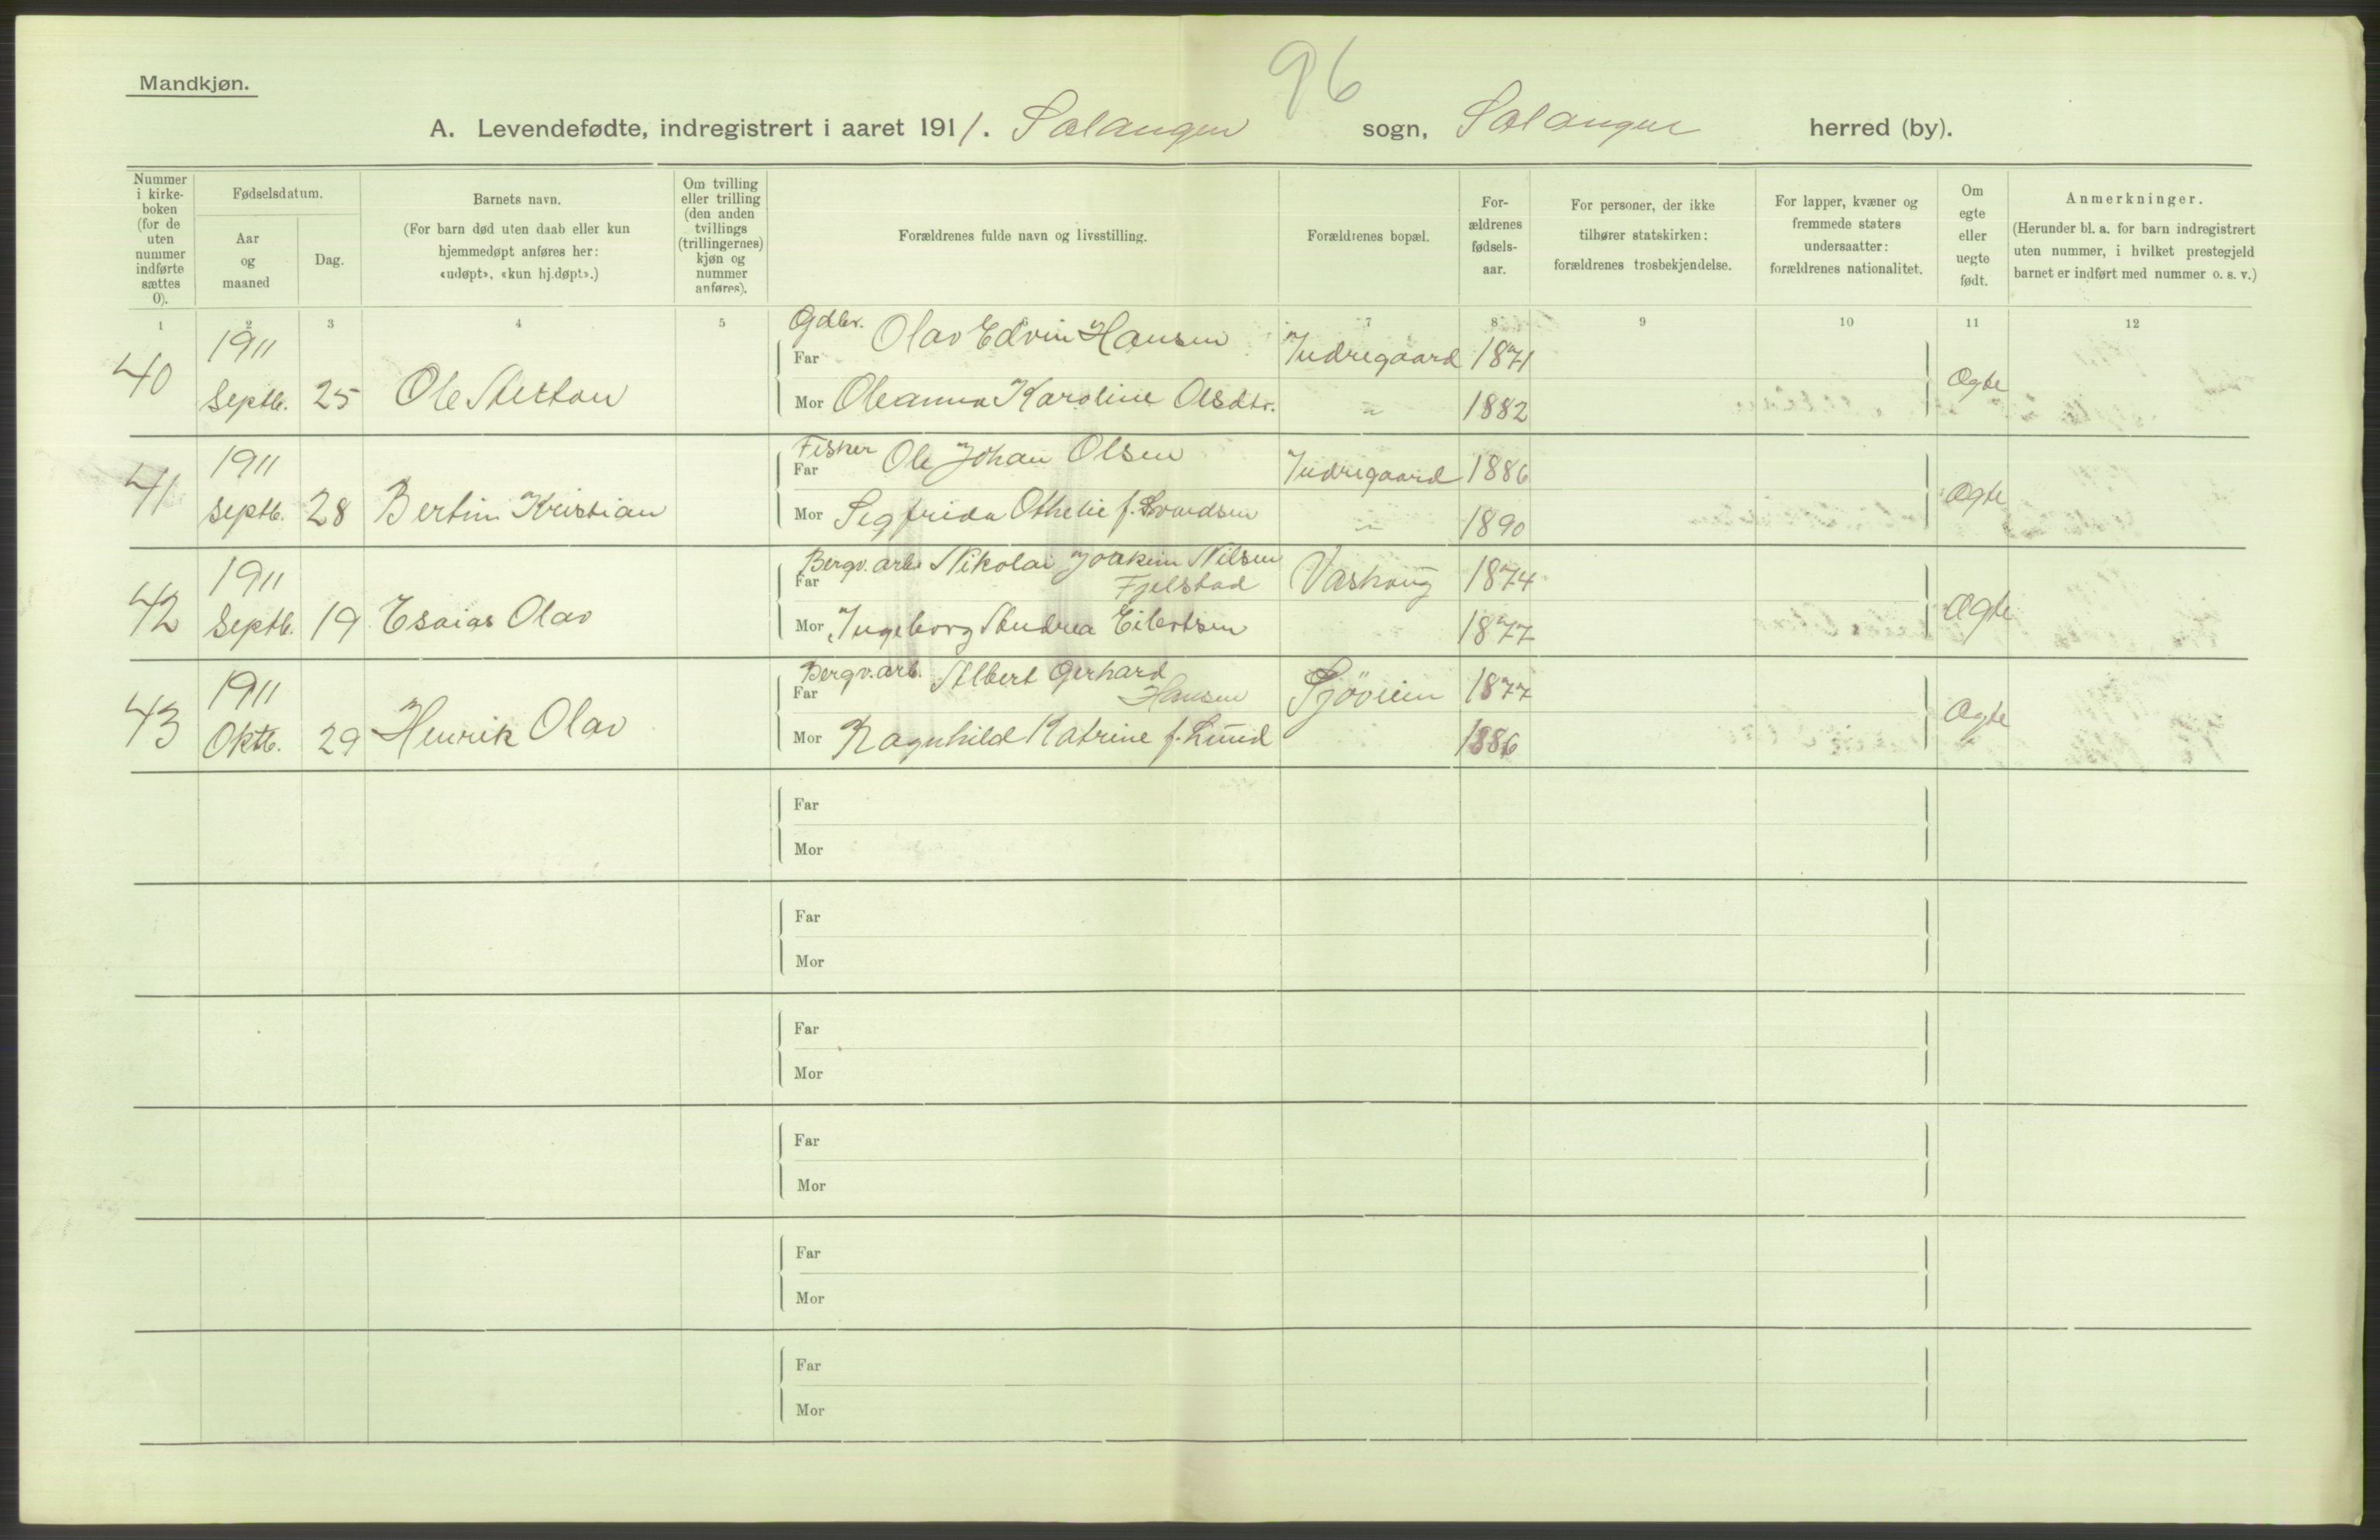 96
Mandkjøn.
A. Levendefødte, indregistrert i aaret 1911. Salangen sogn, Salangen herred (by).
Nummer i kirkeboken (for de uten nummer indførte sættes 0).
Fødselsdatum.
Aar og maaned
Dag.
Barnets navn.
(For barn død uten daab eller kun hjemmedøpt anføres her: «udøpt», «kun hj.døpt».)
Om tvilling eller trilling (den anden tvillings (trillingernes) kjøn og nummer anføres).
Forældrenes fulde navn og livsstilling.
Forældrenes bopæl.
Forældrenes fødselsaar.
For personer, der ikke tilhører statskirken: forældrenes trosbekjendelse.
For lapper, kvæner og fremmede staters undersaatter: forældrenes nationalitet.
Om egte eller uegte født.
Anmerkninger.
(Herunder bl. a. for barn indregistrert uten nummer, i hvilket prestegjeld barnet er indført med nummer o. s. v.)
1 2 3 4 5 6 7 8 9 10 11 12
40 1911 Septb. 25 Ole
Gdbr. Far Olav Edvin Hansen Indregaard 1871 Ægte
Mor Oleanna Karoline Olsdtr. " 1882
41 1911 Septb. 28 Bertin Kristian
Fisker Far Ole Johan Olsen Indregaard 1886 Ægte
Mor Segfrida Othelie f. " 1890
42 1911 Septb. 19 Esaias Olav
Bergv.arb. Far Nikolai Joakim Nilsen Fjelstad Vashaug 1874 Ægte
Mor Ingeborg Andrea Eilertsen 1877
43 1911 Oktb. 29 Henrik Olav
Bergv.arb. Far Albert Gerhard Hansen Sjöveien 1877 Ægte
Mor Ragnhild Katrine f. Lund 1886
Far
Mor
Far
Mor
Far
Mor
Far
Mor
Far
Mor
Far
Mor